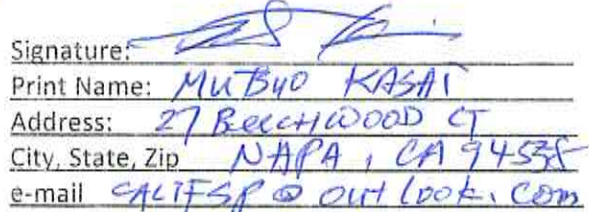 Signature:
Print Name: MUTSUO KASAI
Address: 27 BEECHWOOD CT
City, State, Zip NAPA, CA 94558
e-mail CALIFSP@outlook.com